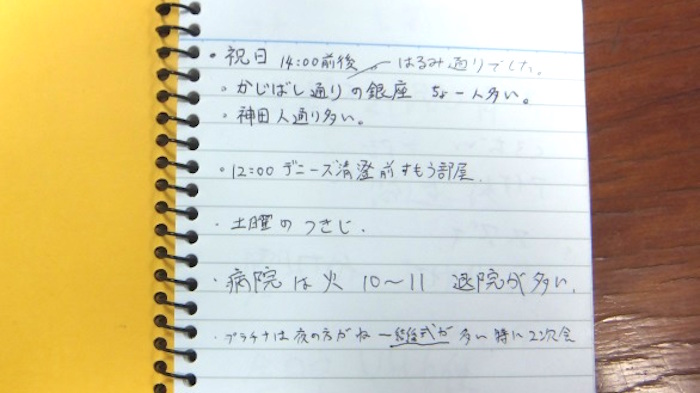 ・祝日 14:00前後 はるみ通りでした。
・かじばし通りの銀座 ちょー人多い。
・神田人通り多い。
・12:00 デニーズ清澄前すもう部屋
・土曜のつきじ.
・病院は火 10〜11 退院が多い.
・プラチナは夜の方がね 多い 特に2次会